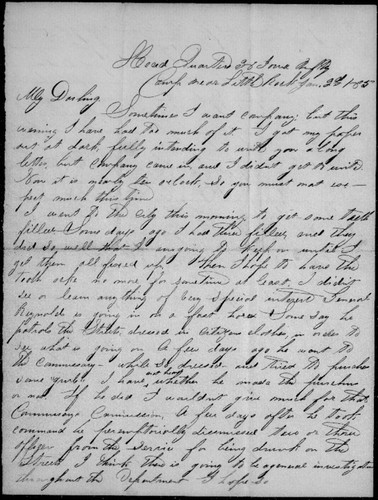 Head Quarters 36 Iowa Infty
Camp near Little Rock Jan. 3d 1865
My Darling,
Sometimes I want company; but this
evening I have had too much of it. I got my paper
out at dark fully intending to write you a long
letter, but company came in, and I didn't get to write.
Now it is nearly ten o'clock, so you must not ex-
pect much this time.
I went to the city this morning to get some teeth
filled. Some days ago I had three filled, and they
did so well that I am going to keep on until I
get them all fixed up. Then I hope to have the
tooth ache no more for sometime at least. I didn't
see or learn anything of very special interest. General
Reynolds is going in on a fast horse. Some say he
patrols the Streets, dressed in citizens clothes, in order to
see what is going on. A few days ago he went to
the Commissary while so dressed and tried to purchase
some goods. I have not heard whether he made the purchase
or not. If he did I wouldn't give much for that
Commissary's Commission. A few days after he took
command he peremptorily dismissed two or three
officers from the service for being drunk on the
Streets. I think there is going to be a general investigation
throughout the Department. I hope so.